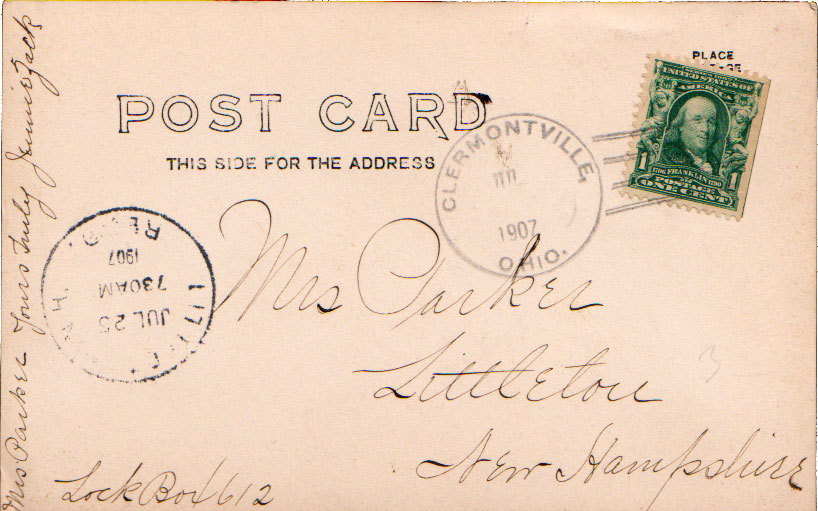 PLACE
POST CARD
THIS SIDE FOR THE ADDRESS
CLERMONTVILLE,
1907
OHIO.
UNITED STATES OF
AMERICA
1706 FRANKLIN 1790
1 POSTAGE 1
ONE CENT
REC'D.
1907
730AM
JUL 25
N.H.
Mrs Parker
Littleton
New Hampshire
Lock Box 612
Mrs Parker Yours Truly Jennie Zack